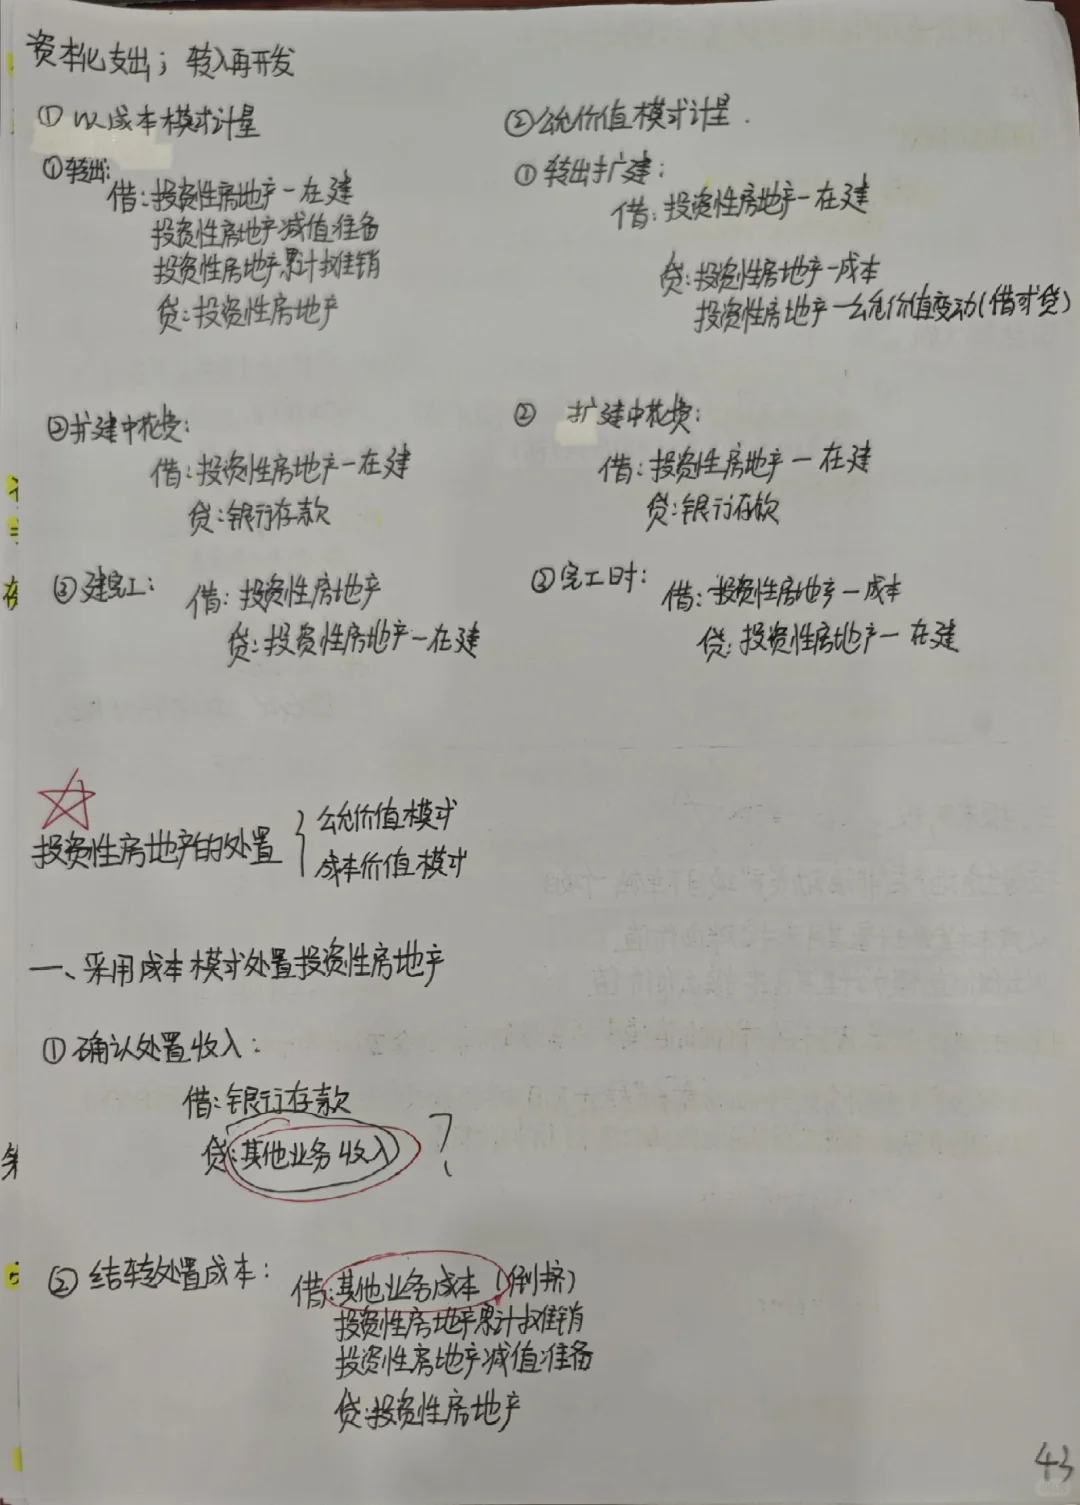 资本化支出；转入再开发
① 以成本模式计量
①转出:
借:投资性房地产一在建
投资性房地产减值准备
投资性房地产累计摊销
贷:投资性房地产
②公允价值模式计量.
①转出扩建:
借:投资性房地产一在建
贷:投资性房地产一成本
投资性房地产一公允价值变动(借或贷)
②扩建中花费:
借:投资性房地产一在建
贷:银行存款
② 扩建中花费:
借:投资性房地产一在建
贷:银行存款
③建完工:
借:投资性房地产
贷:投资性房地产一在建
③完工时:
借:投资性房地产一成本
贷:投资性房地产一在建
投资性房地产的处置
公允价值模式
成本价值模式
一、采用成本模式处置投资性房地产
①确认处置收入:
借:银行存款
贷:其他业务收入 ?
②结转处置成本:
借:其他业务成本(倒挤)
投资性房地产累计摊销
投资性房地产减值准备
贷:投资性房地产
43